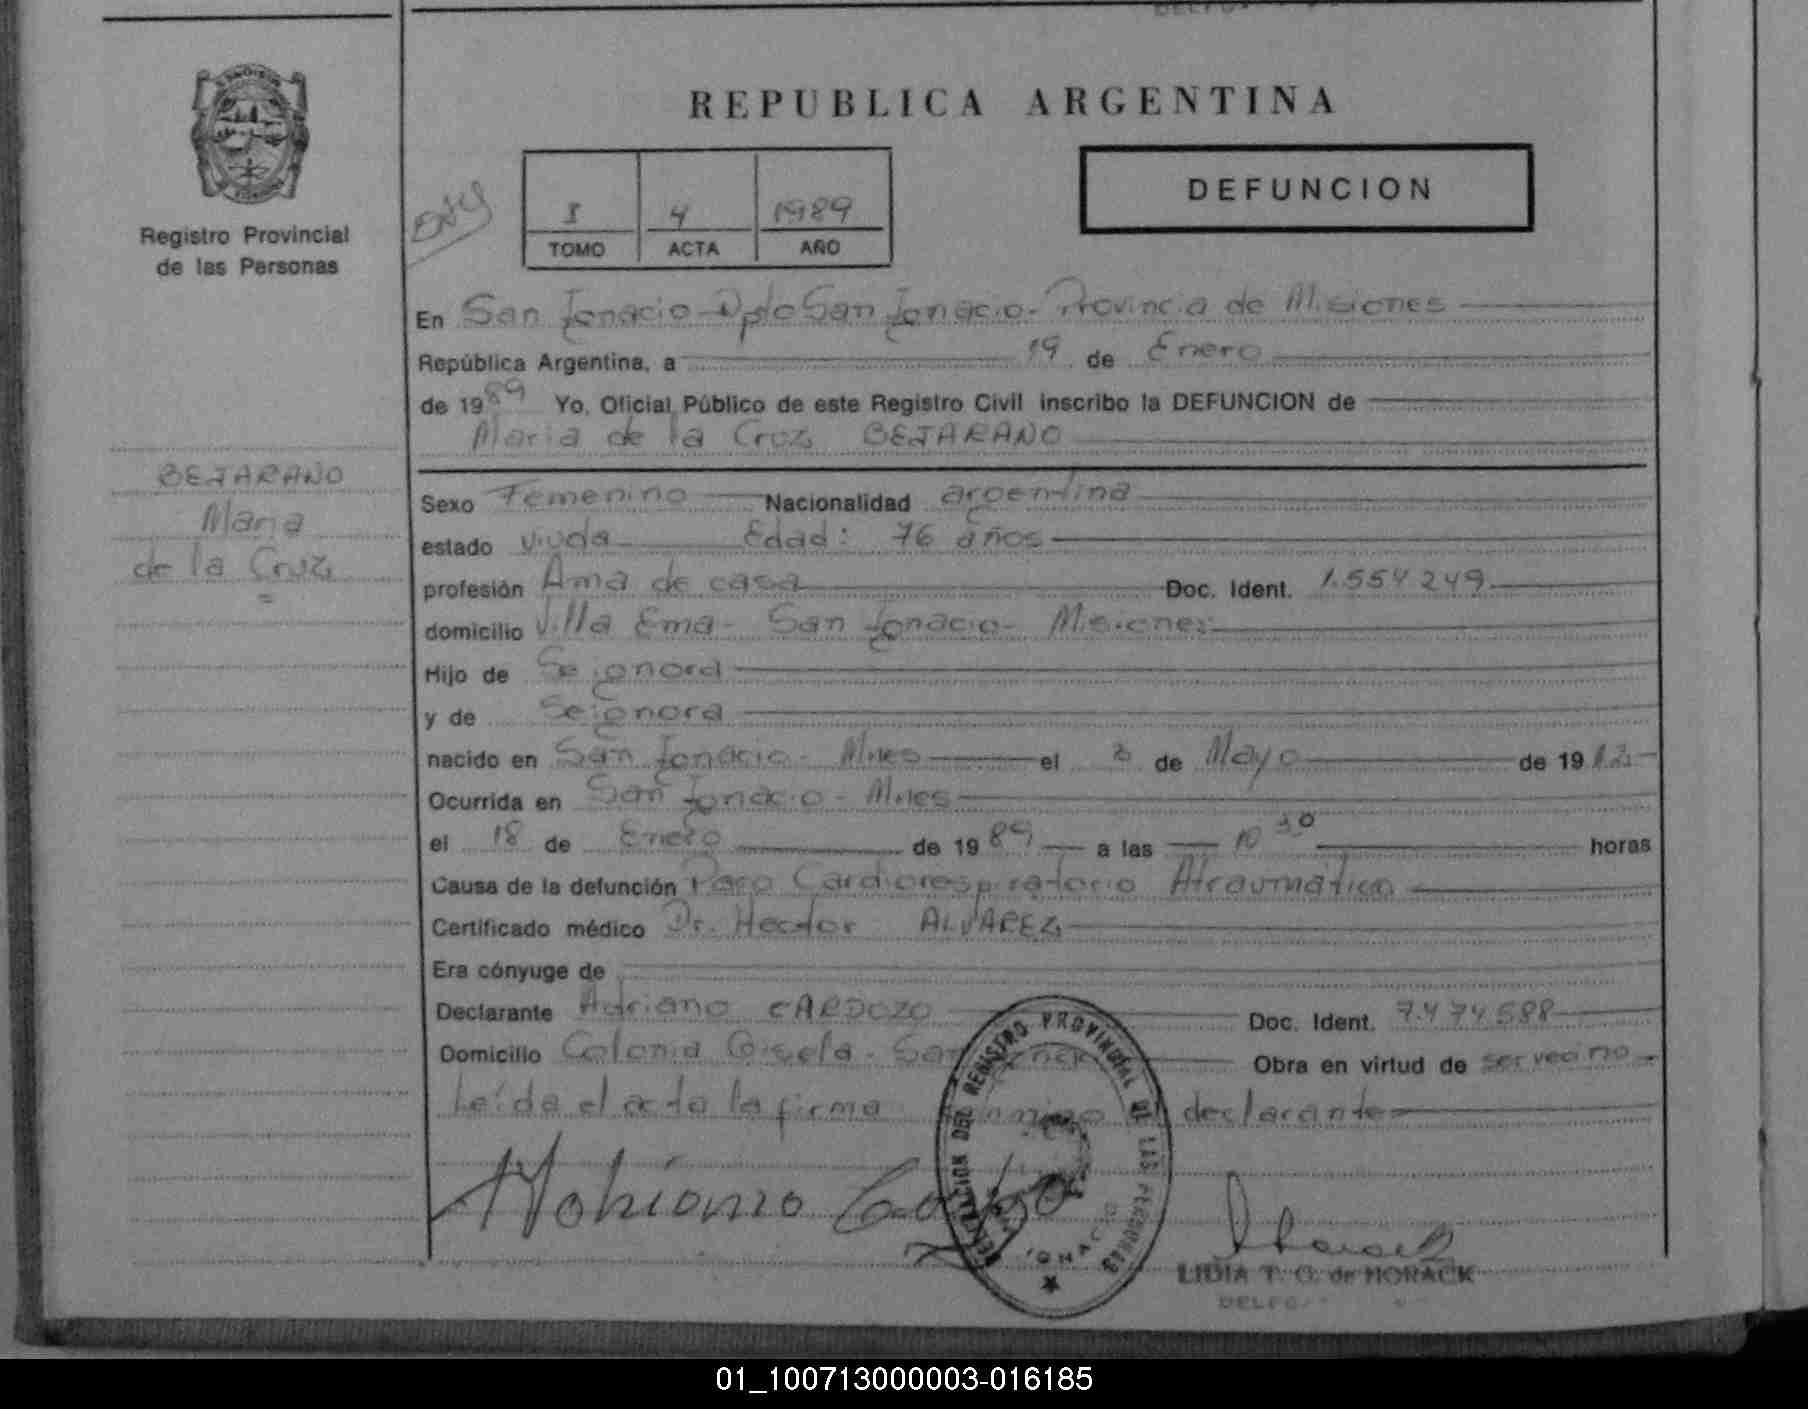 REPUBLICA ARGENTINA
DEFUNCION
Registro Provincial
de las Personas
4 1989
TOMO ACTA AÑO
En San Ignacio - Dpto San Ignacio - Provincia de Misiones
República Argentina, a 19 de Enero
de 1989 Yo, Oficial Público de este Registro Civil inscribo la DEFUNCION de
Maria de la Cruz BEJARANO
BEJARANO
Maria
de la Cruz
Sexo Femenino Nacionalidad argentina
estado viuda Edad: 76 años
profesión Ama de casa Doc. Ident. 1.554249
domicilio Villa Ema - San Ignacio - Misiones
Hijo de Se ignora
y de Se ignora
nacido en San Ignacio - Mnes el 3 de Mayo de 1912
Ocurrida en San Ignacio - Mnes
el 18 de Enero de 1989 a las 10 30 horas
Causa de la defunción Paro Cardiorespiratorio Atraumático
Certificado médico Dr. Hector ALVAREZ
Era cónyuge de
Declarante Adriano CARDOZO Doc. Ident. 7.474588
Domicilio Colonia Gisela - San Ignacio Obra en virtud de ser vecino
Leída el acta la firma conmigo el declarante
DELEGACION DEL REGISTRO PROVINCIAL DE LAS PERSONAS
IGNACIO
LIDIA T. G. de HORACK
01_100713000003-016185